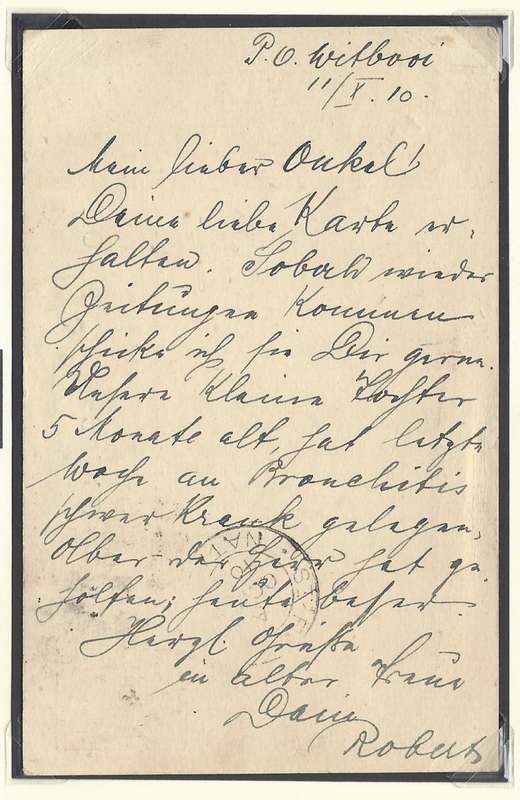 P.O. Witbooi
11/X.10.
Mein lieber Onkel!
Deine liebe Karte er-
halten. Sobald wieder
Zeitungen kommen
schicke ich sie Dir gerne.
Unsere kleine Tochter
5 Monate alt, hat letzte
Woche an Bronchitis
schwer krank gelegen,
Aber der Herr hat ge-
holfen; heute besser.
Herzl. Grüße
in alter Treue
Dein
Robert